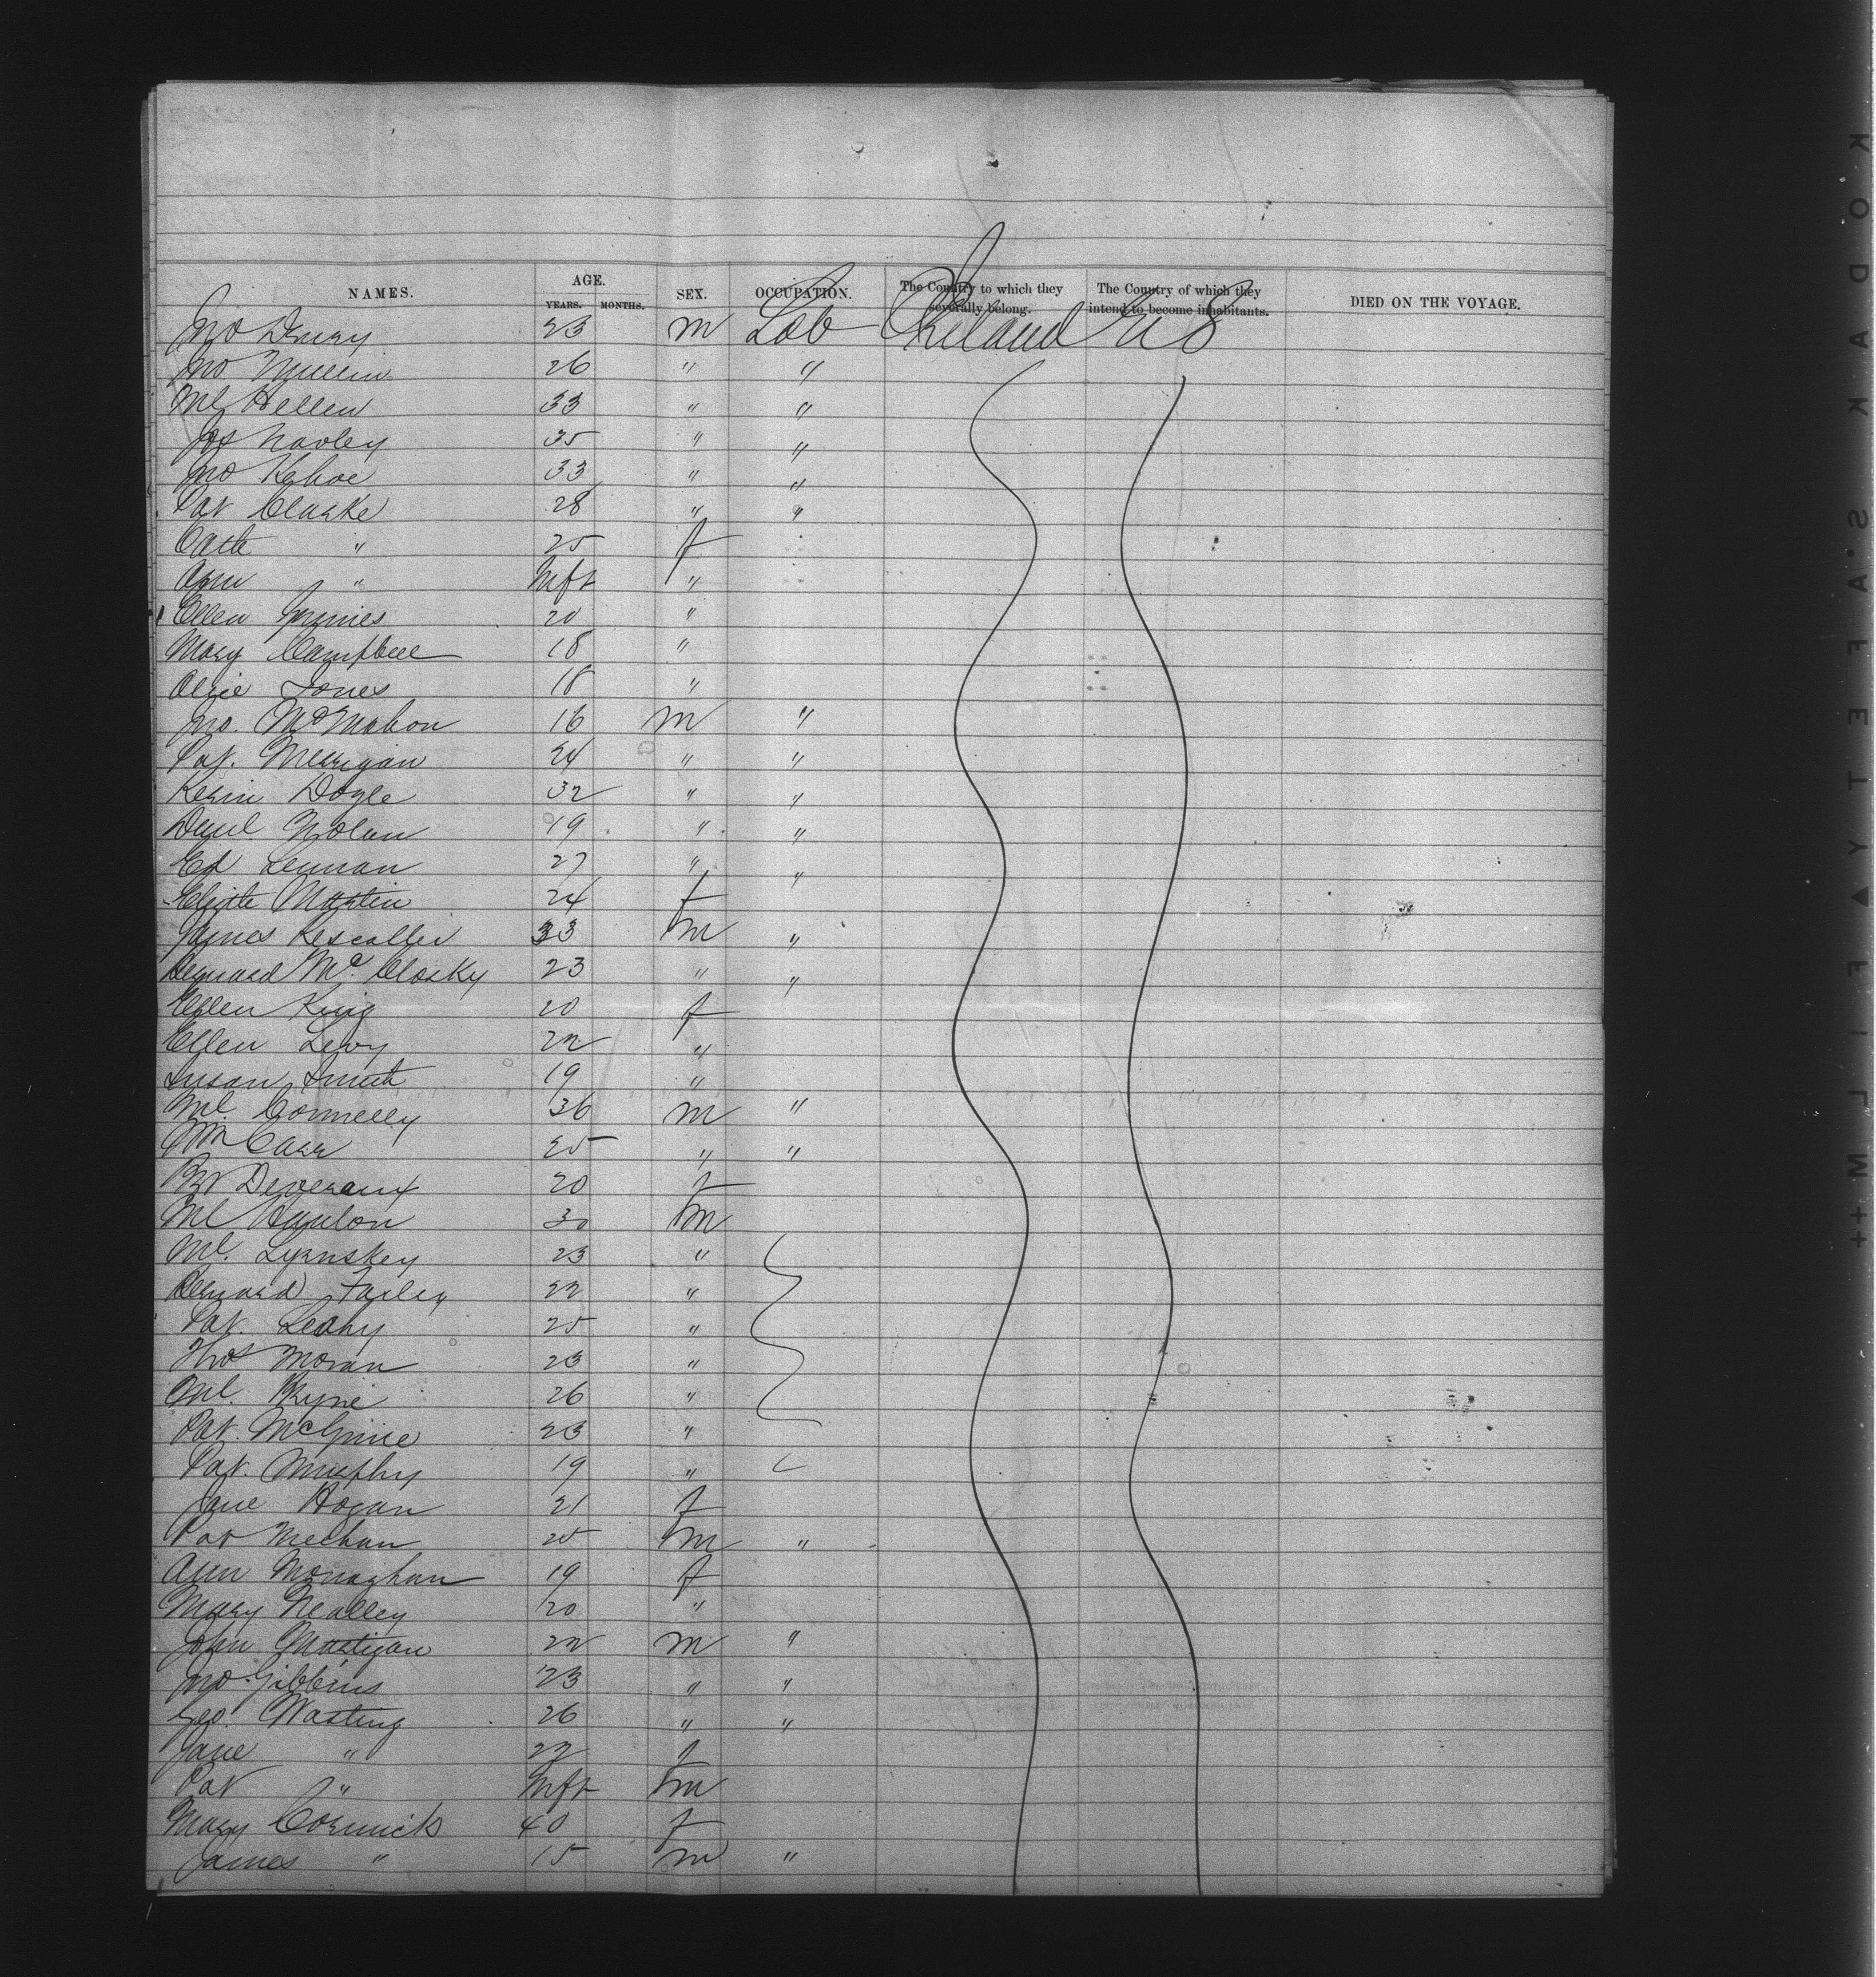 NAMES. AGE. YEARS. MONTHS. SEX. OCCUPATION. The Country to which they severally belong. The Country of which they intend to become inhabitants. DIED ON THE VOYAGE.
Jno Drury 23 m Lab Ireland U S
Jno Mullin 26 " "
Ml Hellen 33 " "
Jos Navley 35 " "
Jno Kehoe 33 " "
Pat Clarke 28 " "
Cath " 25 f
Ann " Inft "
Ellen Grimes 20 "
Mary Campbell 18 "
Alice Jones 18 "
Jno. McMahon 16 m "
Pat. Merrigan 24 " "
Kerin Doyle 32 " "
Danl Nolan 19 " "
Ed Lennan 27 " "
Martin 24 f
James 33 m "
Bernard Mc Closky 23 " "
Ellen King 20 f
Ellen Levy 22 "
Susan Smith 19 "
Ml. Connelly 36 m "
Wm Carr 25 " "
Bt Deveraux 20 f
Ml Hanlon 30 m
Ml. Lyrnskey 23 "
Bernard Farley 22 "
Pat. Leahy 25 "
Thos Moran 23 "
Ml. Ryne 26 "
Pat. McGuire 23 "
Pat. Murphy 19 "
Jane Hogan 21 f
Pat Meehan 25 m "
Ann Monaghan 19 f
Mary Nealley 20 "
John Mastigan 22 m "
Jno Gibbins 23 " "
Geo. Wasting 26 " "
Jane " 22 f
Pat " Inft m
Mary Cormick 40 f
James " 15 m "
KODAK SAFETY FILM